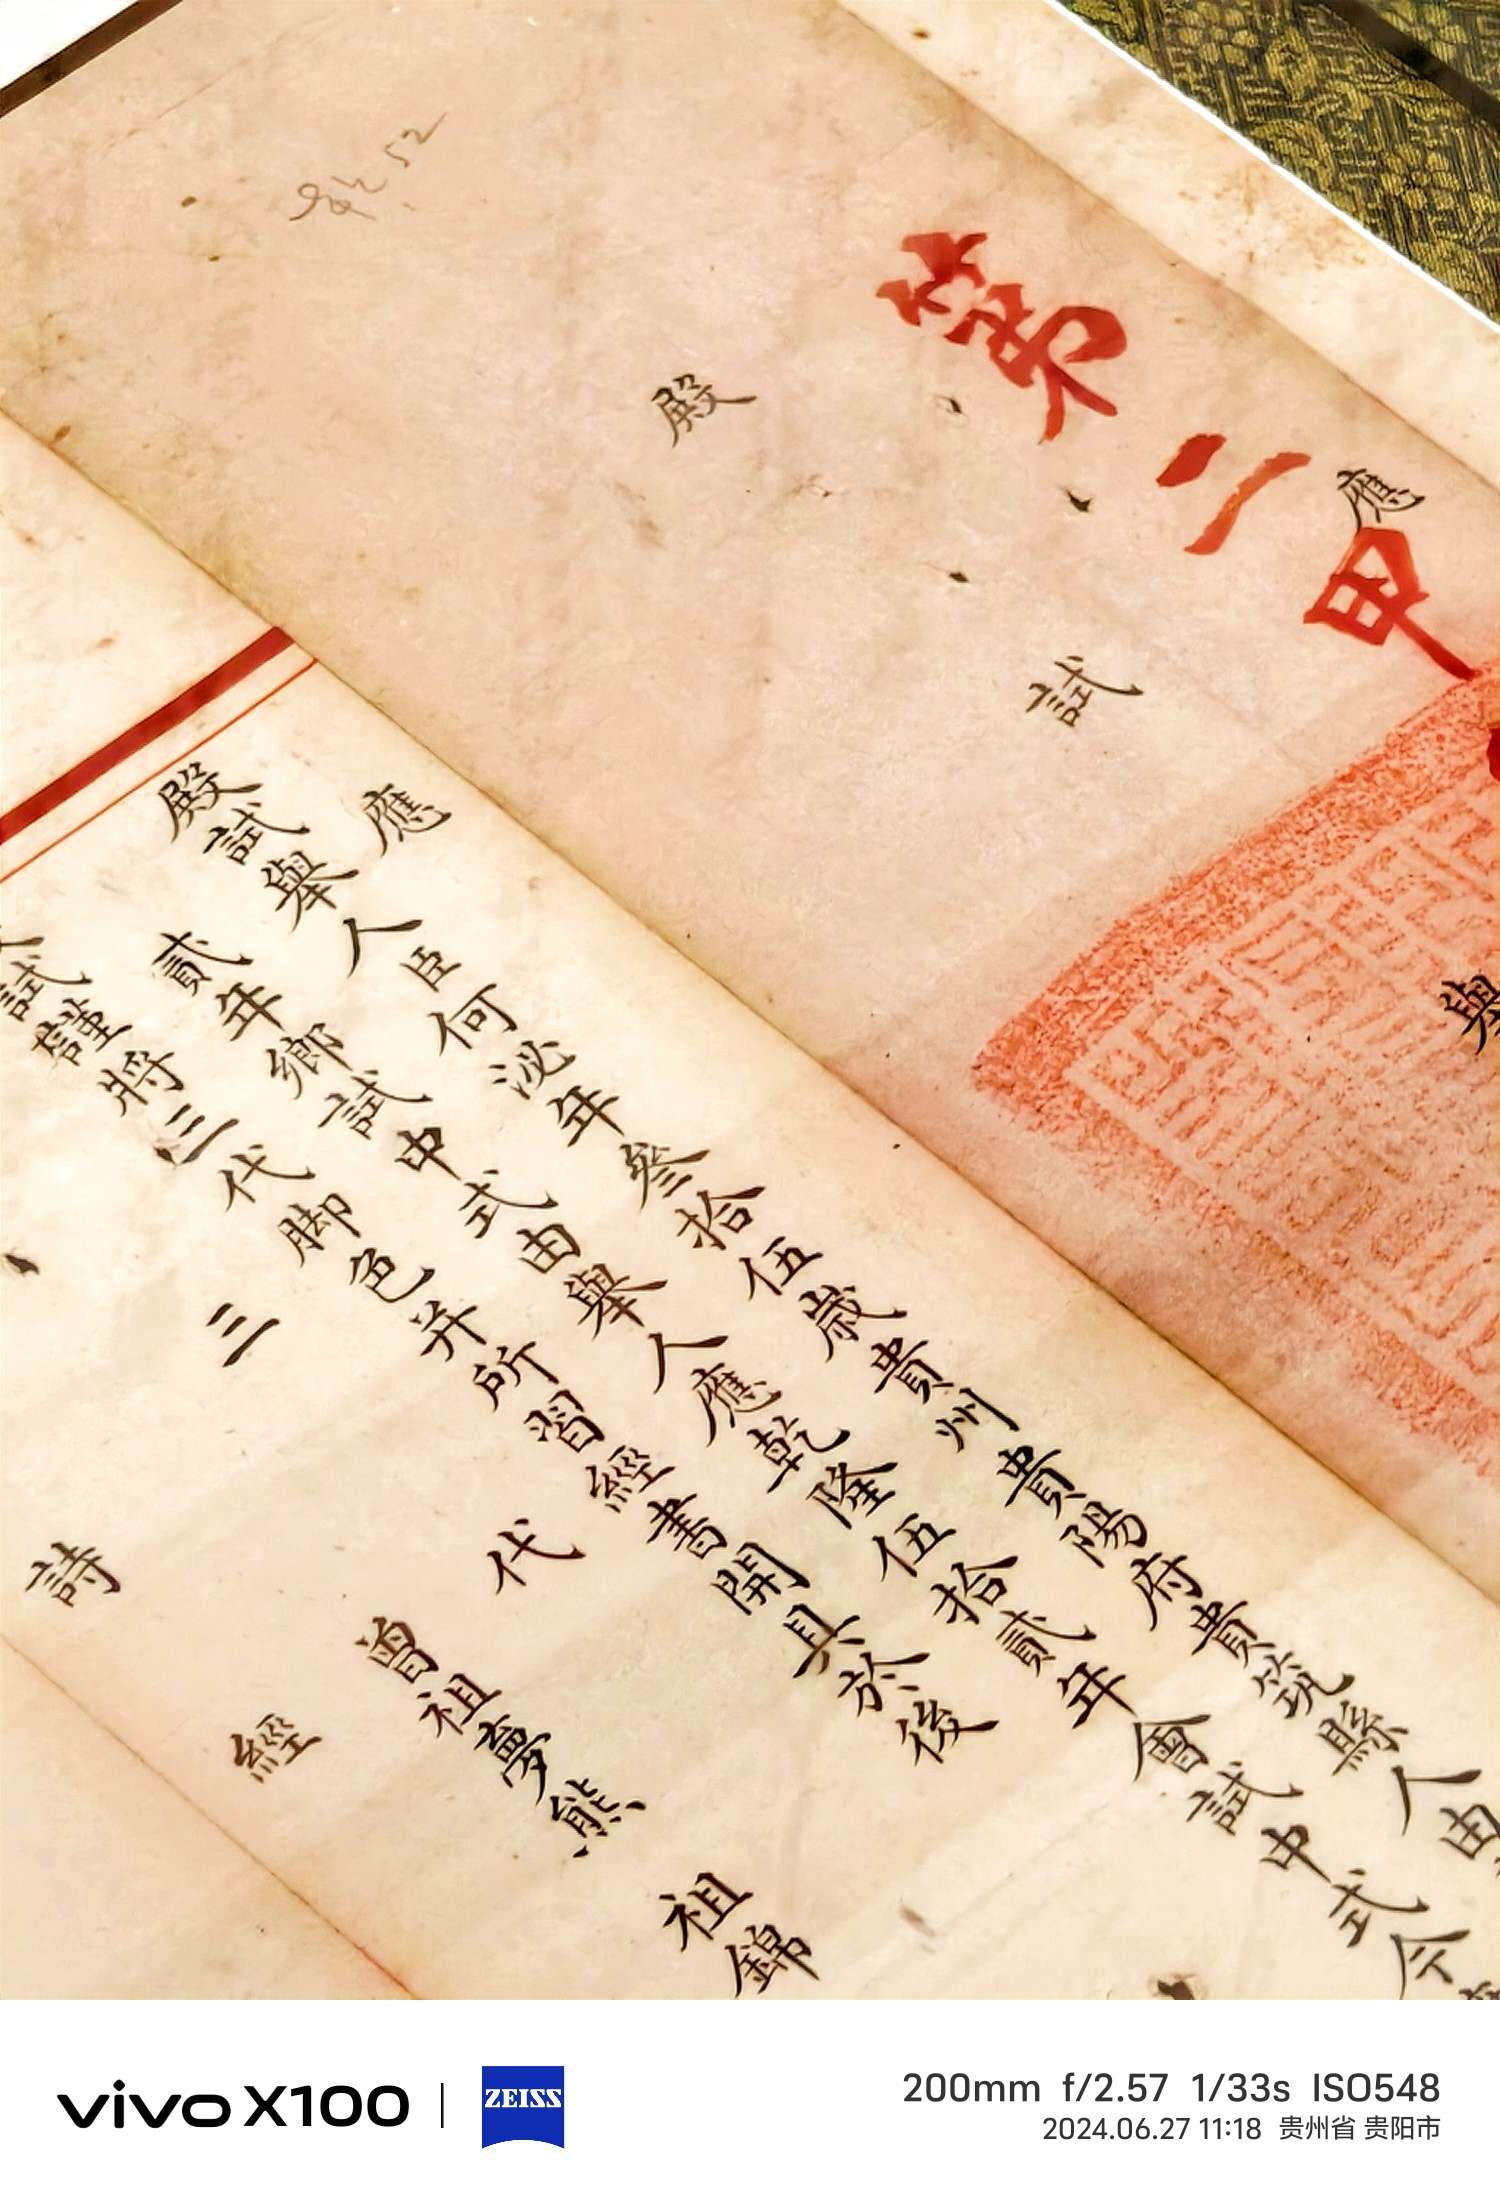 第二甲
應
殿試
舉
應
殿試舉人臣何泌年叁拾伍歲貴州貴陽府貴筑縣人由
貳年鄉試中式由舉人應乾隆伍拾貳年會試中式今
試謹將三代脚色并所習經書開具於後
三代
曾祖夢熊 祖錦
詩經
52
vivo X100
ZEISS
200mm f/2.57 1/33s ISO548
2024.06.27 11:18 贵州省 贵阳市